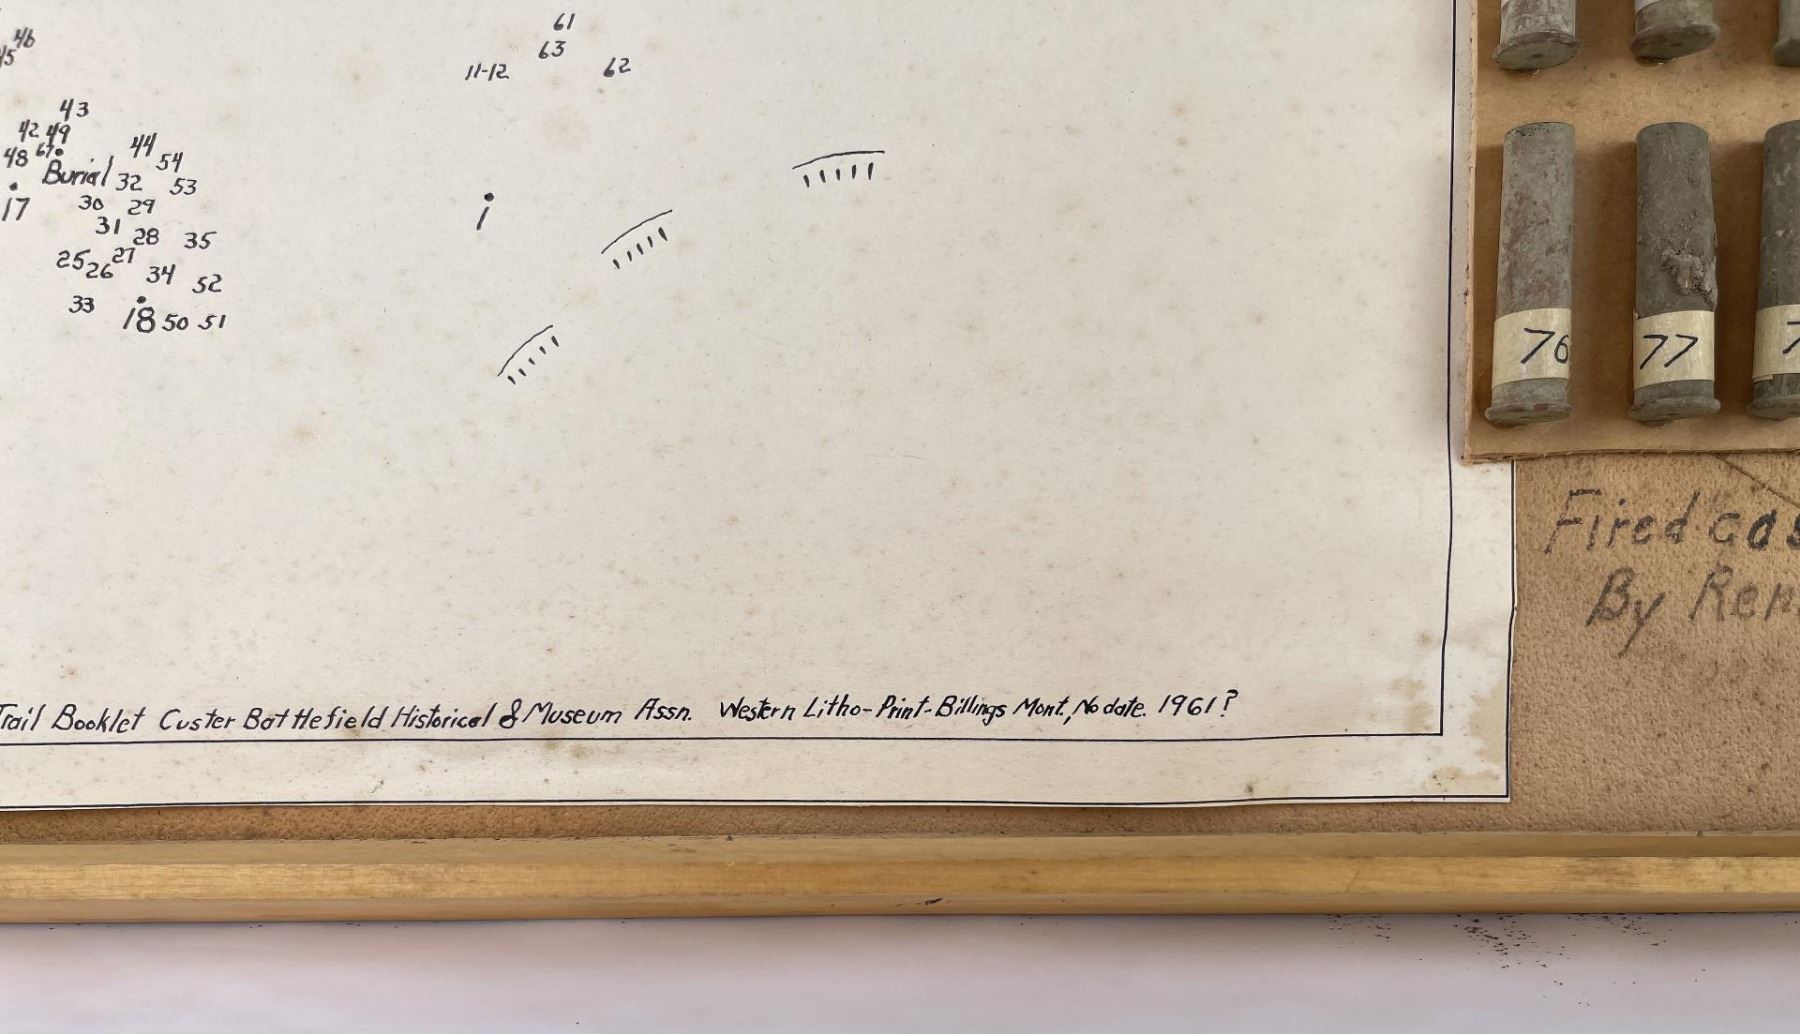 46
45
61
63
11-12 62
43
42 49
44
48 67
54
Burial 32 53
17 30 29
31 28 35
25 26 27
34 52
33
18 50 51
1
76 77 7
Fired cas
By Ren
Trail Booklet Custer Battlefield Historical & Museum Assn. Western Litho-Print-Billings Mont., No date. 1961?